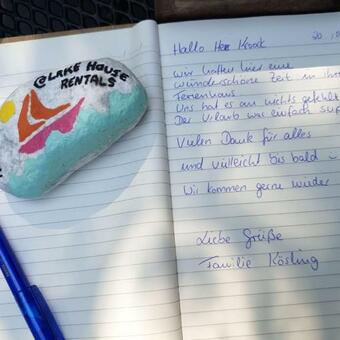 @LAKE HOUSE
RENTALS
Hallo Herr
wir hatten hier eine
wunderschöne Zeit in Ihrem
Ferienhaus
Uns hat es an nichts gefehlt
Der Urlaub war einfach sup
Vielen Dank für alles
und vielleicht bis bald
Wir kommen gerne wieder
Liebe Grüße
Familie Kösling